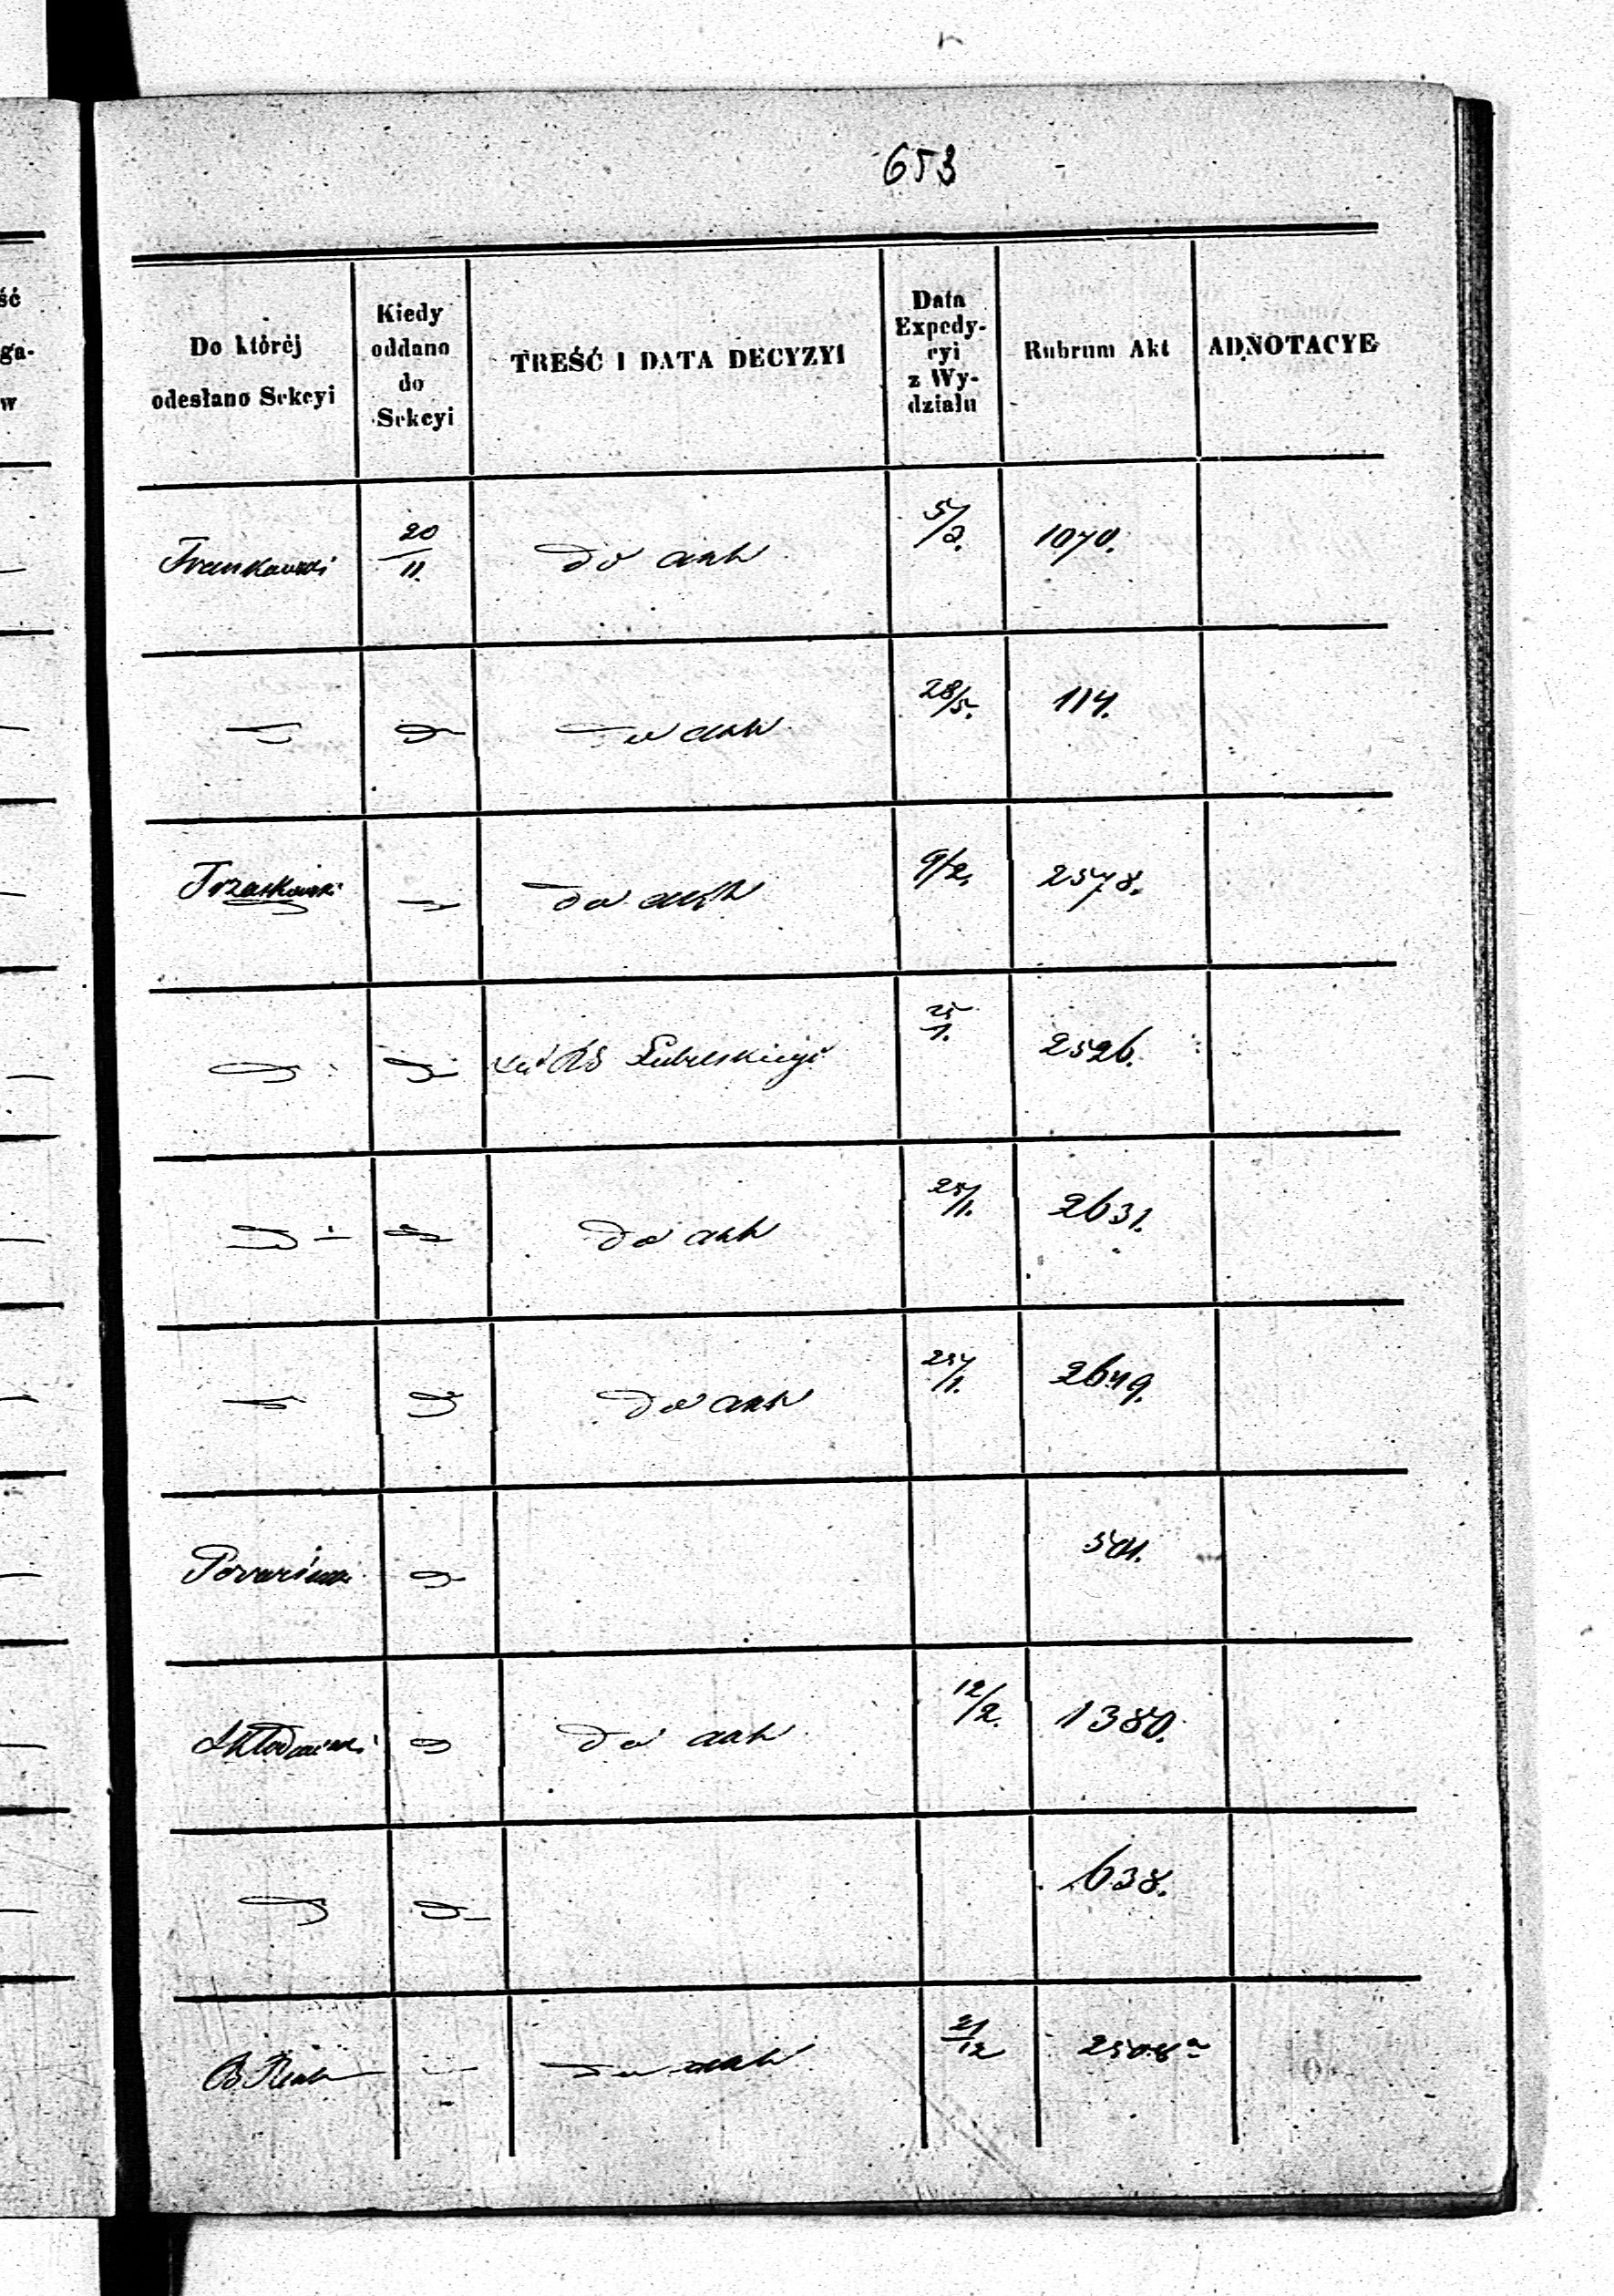 653
ść
ga-
w
Do któréj odesłano Sekcyi
Kiedy oddano do Sekcyi
TREŚĆ I DATA DECYZYI
Data Expedycyi z Wydziału
Rubrum Akt
ADNOTACYE
Frankowski 20/11. do akt 5/2. 1070.
do akt 28/5. 114.
Trzaskowski do akt 9/2. 2578.
Lubelskiego 25/1. 2526.
do akt 25/1. 2631.
do akt 25/1. 2649.
541.
do akt 12/2. 1380.
638.
do akt 21/12 2508